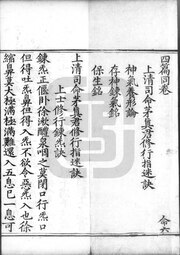 四篇同卷
上清司命茅真君修行指迷訣
神氣養形論
存神鍊氣銘
保生銘
命六
上清司命茅真君修行指迷訣
上士修行鍊炁訣
鍊炁正偃卧徐漱醴泉咽之莫閉口行炁口
但得吐炁鼻但得入炁不欲令惡炁入也徐
縮鼻引之大極滿難還入五息已一息可